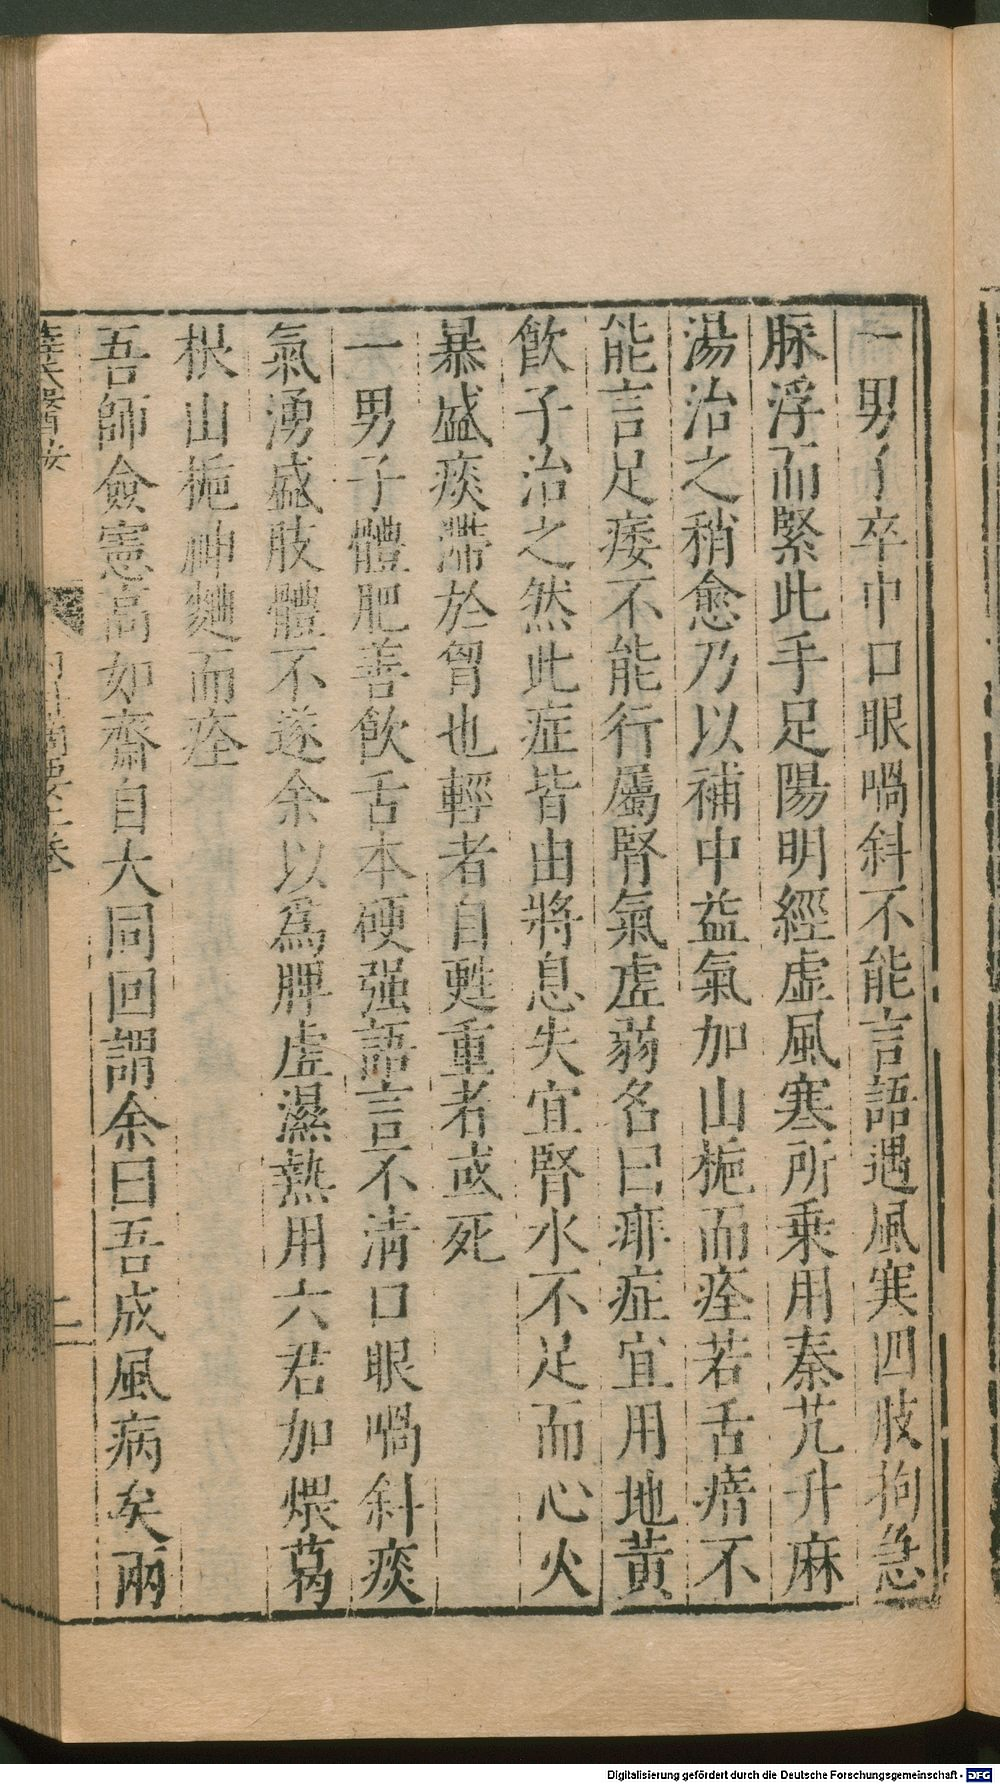 一男子卒中口眼喎斜不能言語遇風寒四肢拘急
脉浮而緊此手足陽明經虛風寒所乗用秦艽升麻
湯治之稍愈乃以補中益氣加山梔而痊若舌瘖不
能言足痿不能行屬腎氣虛弱名曰痱症宜用地黃
飲子治之然此症皆由將息失宜腎水不足而心火
暴盛痰滯於胷也輕者自甦重者或死
一男子體肥善飲舌本硬强語言不清口眼喎斜痰
氣湧盛肢體不遂余以爲脾虛濕熱用六君加煨葛
根山梔神麯而痊
吾師僉憲高如齋自大同回謂余曰吾成風病矣兩
內科摘要上卷
二
Digitalisierung gefördert durch die Deutsche Forschungsgemeinschaft - DFG